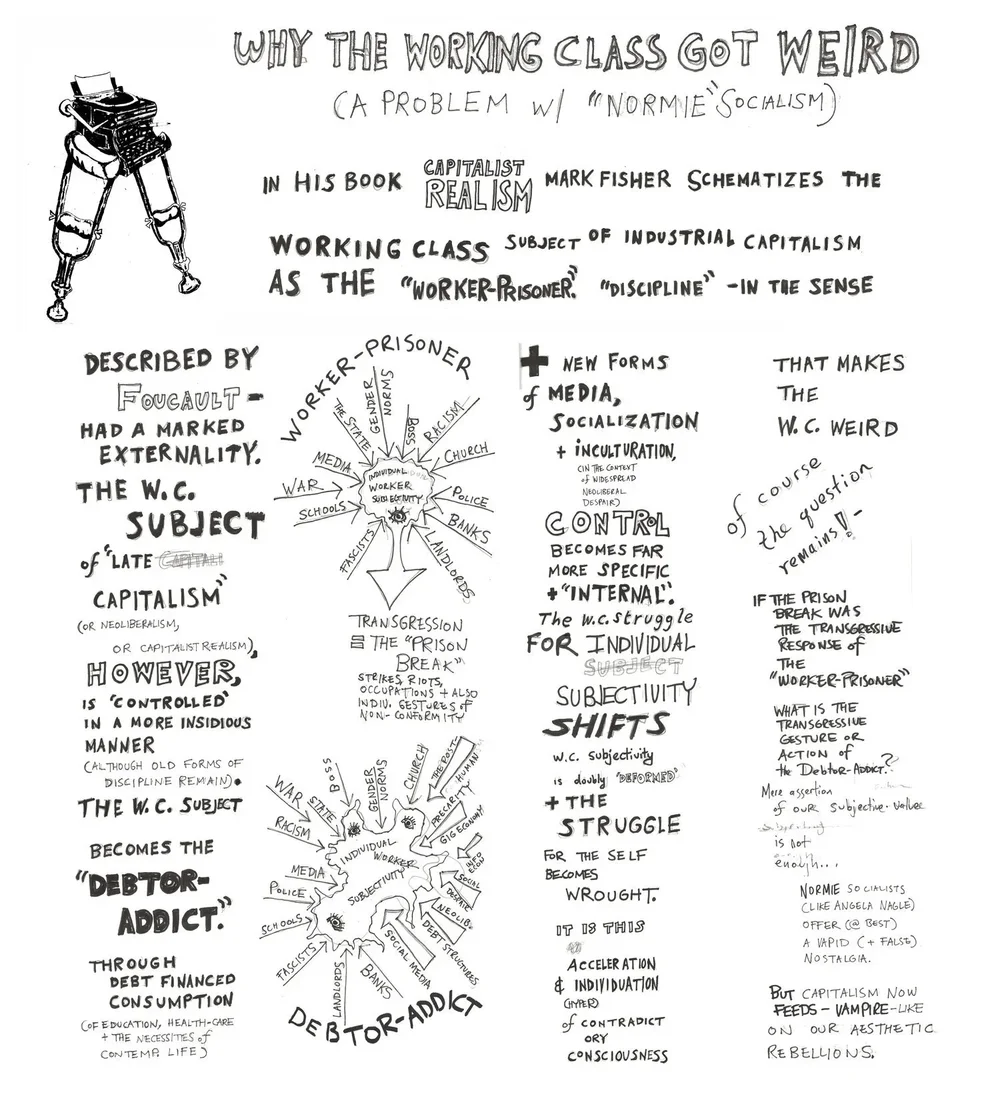 WHY THE WORKING CLASS GOT WEIRD
(A PROBLEM W/ "NORMIE" SOCIALISM)
IN HIS BOOK CAPITALIST REALISM MARK FISHER SCHEMATIZES THE
WORKING CLASS SUBJECT OF INDUSTRIAL CAPITALISM
AS THE "WORKER-PRISONER". "DISCIPLINE" - IN THE SENSE
DESCRIBED BY
FOUCAULT -
HAD A MARKED
EXTERNALITY.
THE W.C.
SUBJECT
of "LATE CAPITALI
CAPITALISM"
(OR NEOLIBERALISM,
OR CAPITALIST REALISM),
HOWEVER,
IS "CONTROLLED"
IN A MORE INSIDIOUS
MANNER
(ALTHOUGH OLD FORMS OF
DISCIPLINE REMAIN).
THE W.C. SUBJECT
BECOMES THE
"DEBTOR-
ADDICT."
THROUGH
DEBT FINANCED
CONSUMPTION
(OF EDUCATION, HEALTH-CARE
+ THE NECESSITIES of
CONTEMP. LIFE)
WORKER-PRISONER
THE STATE
GENDER
NORMS
BOSS
RACISM
MEDIA
CHURCH
WAR
POLICE
SCHOOLS
BANKS
FASCISTS
LANDLORDS
INDIVIDUAL
WORKER
SUBJECTIVITY
TRANSGRESSION
= THE "PRISON
BREAK"
STRIKES, RIOTS,
OCCUPATIONS + ALSO
INDIV. GESTURES of
NON-CONFORMITY
BOSS
GENDER
NORMS
CHURCH
THE POST-
HUMAN
WAR
STATE
PRECARITY
RACISM
GIG ECONOMY
INDIVIDUAL
WORKER
SUBJECTIVITY
MEDIA
SOCIAL
DESPAIR
POLICE
NEOLIB.
SCHOOLS
DEBT STRUCTURES
SOCIAL MEDIA
FASCISTS
LANDLORDS
BANKS
DEBTOR-ADDICT
+ NEW FORMS
of MEDIA,
SOCIALIZATION
+ INCULTURATION,
(IN THE CONTEXT
of WIDESPREAD
NEOLIBERAL
DESPAIR)
CONTROL
BECOMES FAR
MORE SPECIFIC
+ "INTERNAL".
The w.c. struggle
FOR INDIVIDUAL
SUBJECT
SUBJECTIVITY
SHIFTS
W.C. subjectivity
is doubly "DEFORMED"
+ THE
STRUGGLE
FOR THE SELF
BECOMES
WROUGHT.
IT IS THIS
ACCELERATION
& INDIVIDUATION
(HYPER)
of CONTRADICT
ORY
CONSCIOUSNESS
THAT MAKES
THE
W.C. WEIRD
of course
the question
remains! -
IF THE PRISON
BREAK WAS
THE TRANSGRESSIVE
RESPONSE of
THE
"WORKER-PRISONER"
WHAT IS THE
TRANSGRESSIVE
GESTURE OR
ACTION of
the Debtor-ADDICT.?
Mere assertion
of our subjective-value
is not
enough...
NORMIE SOCIALISTS
(LIKE ANGELA NAGLE)
OFFER (@ BEST)
A VAPID (+ FALSE)
NOSTALGIA.
BUT CAPITALISM NOW
FEEDS - VAMPIRE-LIKE
ON OUR AESTHETIC
REBELLIONS.